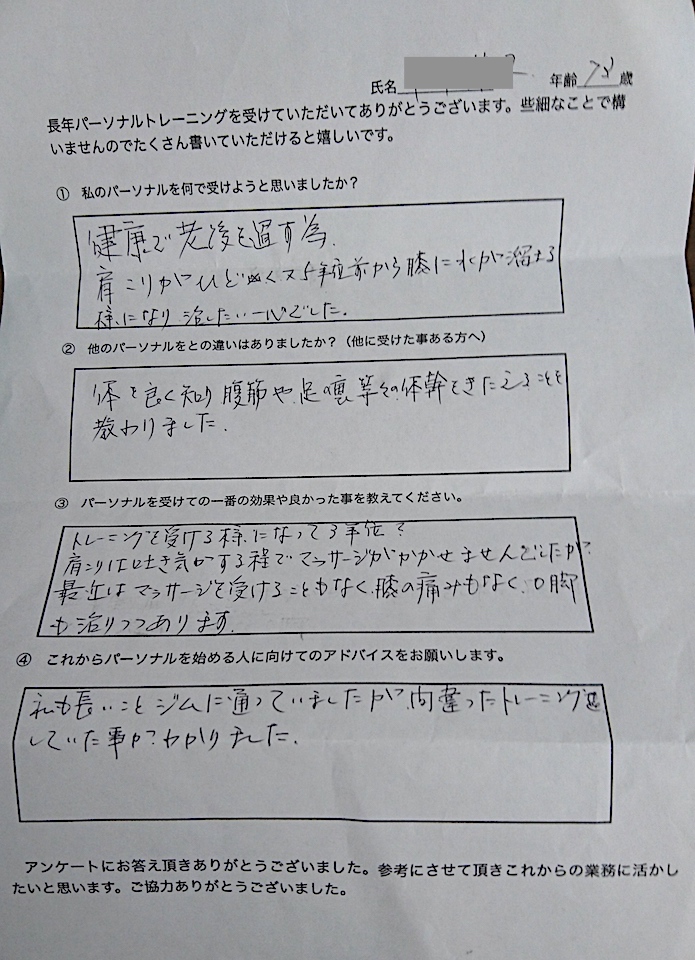 氏名 年齢 歳
長年パーソナルトレーニングを受けていただいてありがとうございます。些細なことで構
いませんのでたくさん書いていただけると嬉しいです。
① 私のパーソナルを何で受けようと思いましたか？
健康で老後を過す為.
肩こりがひどく又5年位前から膝に水が溜まる
様になり治したい一心でした.
② 他のパーソナルをとの違いはありましたか？（他に受けた事ある方へ）
体を良く知り腹筋や足 等々の体幹をきたえることを
教わりました.
③ パーソナルを受けての一番の効果や良かった事を教えてください。
トレーニングを受ける様になって3年位？
肩こりは吐き気がする程でマッサージがかかせませんでしたが
最近はマッサージを受けることもなく.膝の痛みもなく.O脚
も治りつつあります.
④ これからパーソナルを始める人に向けてのアドバイスをお願いします。
私も長いことジムに通っていましたが.間違ったトレーニングを
していた事がわかりました.
アンケートにお答え頂きありがとうございました。参考にさせて頂きこれからの業務に活かし
たいと思います。ご協力ありがとうございました。